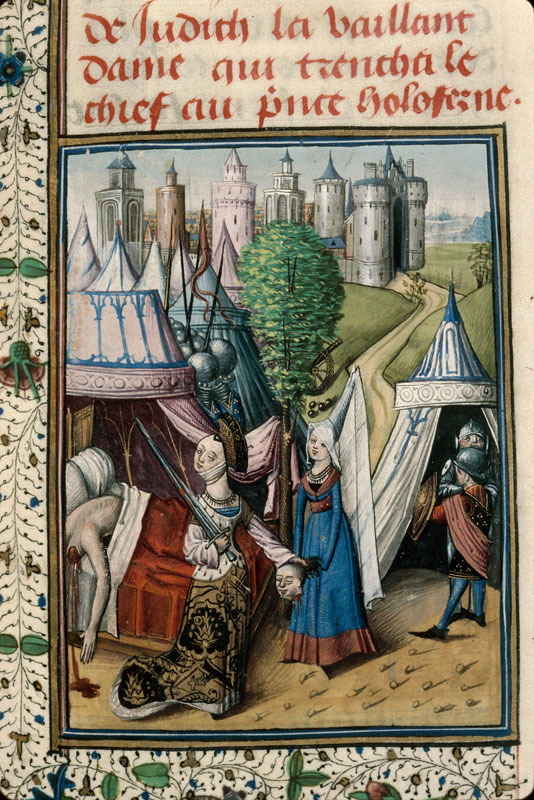 de Judith la vaillant
dame qui trencha le
chief au p̄nce holoferne.